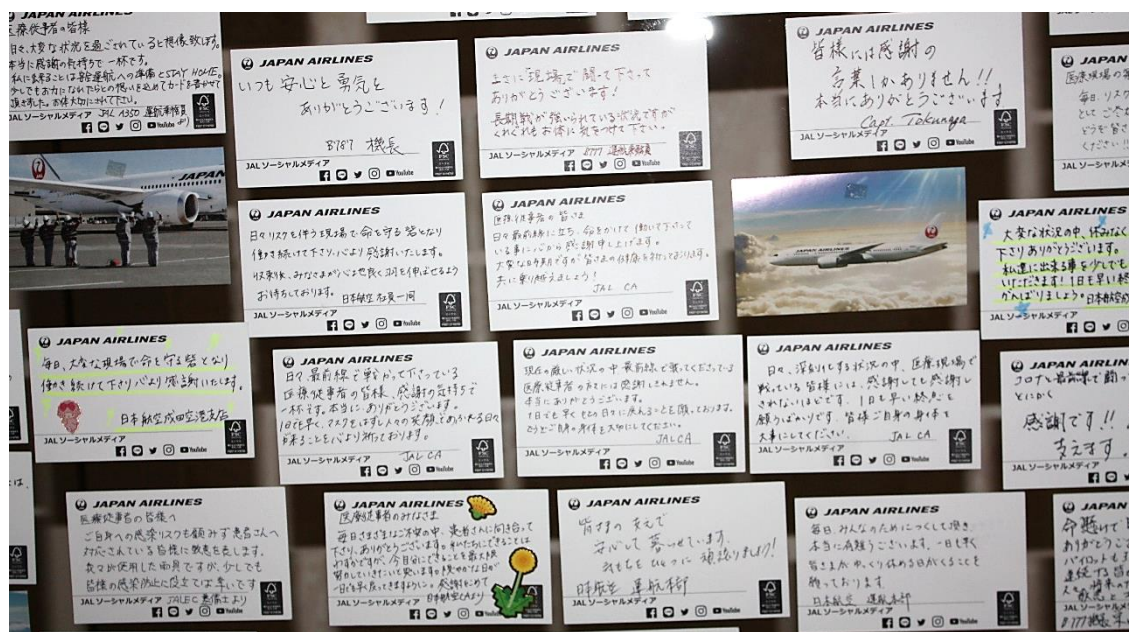 JAPAN AIRLINES
医療従事者の皆様
日々、大変な状況を過ごされていると想像致します。
本当に感謝の気持ちで一杯です。
私に出来ることは 運航への準備とSTAY HOME。
少しでもお力になれたらとの想いを込めてカードを書かせて
頂きました。お体大切にされて下さい。
JAL A350 運航乗務員
JALソーシャルメディア
YouTube
JAPAN AIRLINES
いつも 安心と勇気を
ありがとうございます!
B787 機長
JALソーシャルメディア
YouTube
JAPAN AIRLINES
まさに「現場」で闘って下さって
ありがとうございます!
長期戦が強いられている状況ですが
くれぐれもお体に気をつけて下さい。
B777 運航乗務員
JALソーシャルメディア
YouTube
JAPAN AIRLINES
皆様には感謝の
言葉しかありません!!
本当にありがとうございます
Capt. Tokunaga
JALソーシャルメディア
YouTube
JAPAN AIRLINES
日々リスクを伴う現場で命を守る砦となり
働き続けて下さり、心より感謝いたします。
収束後、みなさまが心地良く羽を伸ばせるよう
お待ちしております。 日本航空 社員一同
JALソーシャルメディア
YouTube
JAPAN AIRLINES
医療従事者の皆さま
日々最前線に立ち、命をかけて働いて下さって
いる事に心から感謝申し上げます。
大変な時期ですが皆さまの健康を祈っております。
共に乗り越えましょう!
JAL CA
JALソーシャルメディア
YouTube
JAPAN AIRLINES
JAPAN AIRLINES
大変な状況の中、休みなく
下さりありがとうございます。
私達に出来る事を少しでも
いただきます!1日も早い終
がんばりましょう。日本航空成
JALソーシャルメディア
JAPAN AIRLINES
毎日、大変な現場で命を守る砦となり
働き続けて下さり心より感謝いたします。
日本航空成田空港支店
JALソーシャルメディア
YouTube
JAPAN AIRLINES
日々、最前線で戦かって下さっている
医療従事者の皆様、感謝の気持ちで
一杯です。本当に、ありがとうございます。
1日でも早く、マスクをはずし人々の笑顔であふれる日々が
来ることを心より祈っております。
JAL CA
JALソーシャルメディア
YouTube
JAPAN AIRLINES
現在の厳しい状況の中 最前線で戦ってくださっている
医療従事者の方々には感謝しきれません。
本当にありがとうございます。
1日でも早くもとの日々に戻れることを願っております。
どうぞご自身の身体を大切にしてください。
JAL CA
JALソーシャルメディア
YouTube
JAPAN AIRLINES
日々、深刻化する状況の中、医療現場で
戦っている皆様には、感謝しても感謝し
きれないほどです。1日も早い終息を
願うばかりです。皆様ご自身の身体を
大事にしてください。 JAL CA
JALソーシャルメディア
YouTube
JAPAN AIRLINES
コロナと最前線で闘っ
とにかく
感謝です!!
支えます。
JALソーシャルメディア
JAPAN AIRLINES
医療従事者の皆様へ
ご自身への感染リスクも顧みず患者さんへ
対応されている皆様に敬意を表します。
我々が使用した雨具ですが、少しでも
皆様の感染防止に役立てば幸いです
JALEC 整備士より
JALソーシャルメディア
YouTube
JAPAN AIRLINES
医療従事者のみなさま
毎日さまざまなご不安の中、患者さんに向き合って
下さり、ありがとうございます。私たちにできることは
わずかですが、今自分にできることを最大限
努力していきたいと思います。穏やかな日が
一日でも早く戻ってきますように。感謝をこめて
日本航空CAより
JALソーシャルメディア
YouTube
JAPAN AIRLINES
皆さまの支えで
安心して暮らせています。
私たちもひとつに 頑張りましょう!
日本航空 運航本部
JALソーシャルメディア
YouTube
JAPAN AIRLINES
毎日、みんなのためにつくして頂き、
本当に有難うございます。一日も早く
皆さまがゆっくり休める日がくることを
願っております。
日本航空 運航本部
JALソーシャルメディア
YouTube
JAPAN AIRLINES
命懸けで
ありがとうご
パイロットも
JALソーシャル